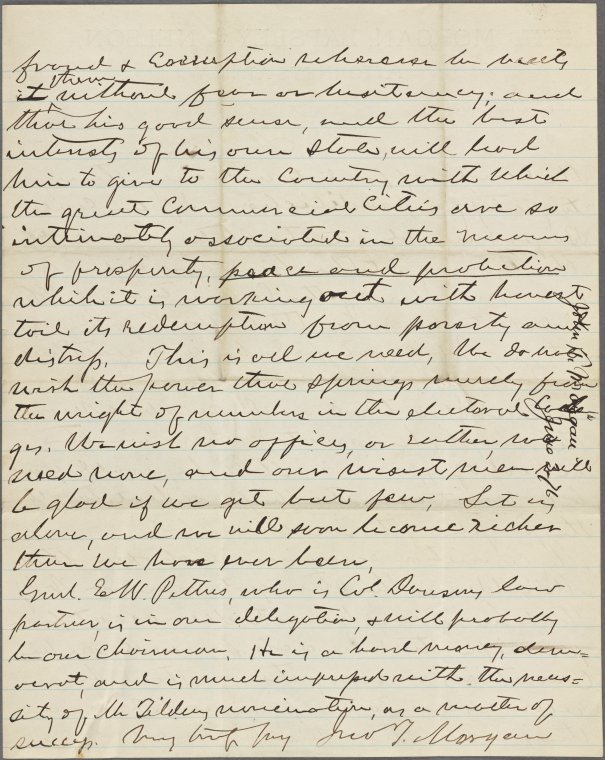 fraud & corruption wherever he meets
it them without fear or hesitancy; and
that his good sense, and the best
interests of his own State, will lead
him to give to the Country with which
the great Commercial Cities are so
intimately associated in the means
of prosperity, peace and protection
while it is working out with honest
toil its redemption from poverty and
distress. This is all we need, We do not
wish the power that springs merely from
the might of numbers in the electoral
ges. We wish no offices, or rather, we
need none, and our wisest men will
be glad if we get but few, Let us
alone, and we will soon become richer
than we have ever been,
Genl. E W. Pettus, who is Col. Dawsons law
partner, is in our delegation, & will probably
be our Chairman. He is a hard money, dem=
ocrat, and is much impressed with the neces=
sity of Mr Tildens nomination, as a matter of
success. Very trly yrs Jno T. Morgan
John T. Morgan
June 2/76